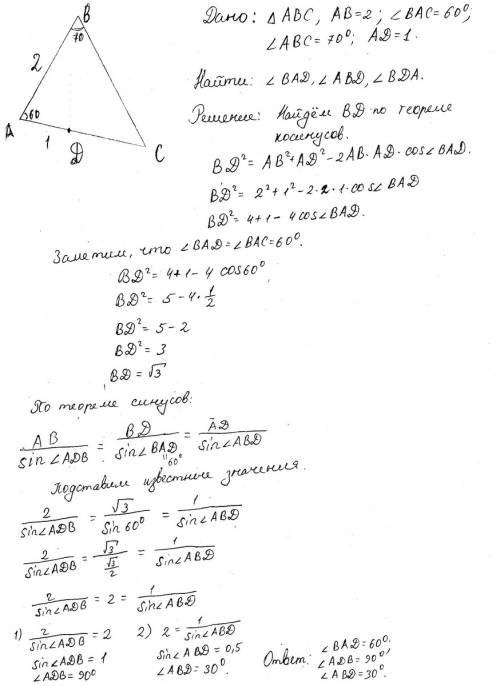 B
70
2
60
A
1
D
C
Дано: △ABC, AB=2; ∠BAC=60°;
∠ABC=70°; AD=1.
Найти: ∠BAD, ∠ABD, ∠BDA.
Решение: Найдём BD по теореме
косинусов.
BD²=AB²+AD²-2AB·AD·cos∠BAD.
BD²=2²+1²-2·2·1·cos∠BAD
BD²=4+1-4cos∠BAD.
Заметим, что ∠BAD=∠BAC=60°.
BD²=4+1-4cos60°,
BD²=5-4·1/2
BD²=5-2
BD²=3
BD=√3
По теореме синусов:
AB/sin∠ADB = BD/sin∠BAD = AD/sin∠ABD
60°
Подставим известные значения.
2/sin∠ADB = √3/sin60° = 1/sin∠ABD
2/sin∠ADB = √3/(√3/2) = 1/sin∠ABD
2/sin∠ADB = 2 = 1/sin∠ABD
1) 2/sin∠ADB = 2
sin∠ADB=1
∠ADB=90°
2) 2=1/sin∠ABD
sin∠ABD=0,5
∠ABD=30°.
Ответ: ∠BAD=60°,
∠ADB=90°,
∠ABD=30°.